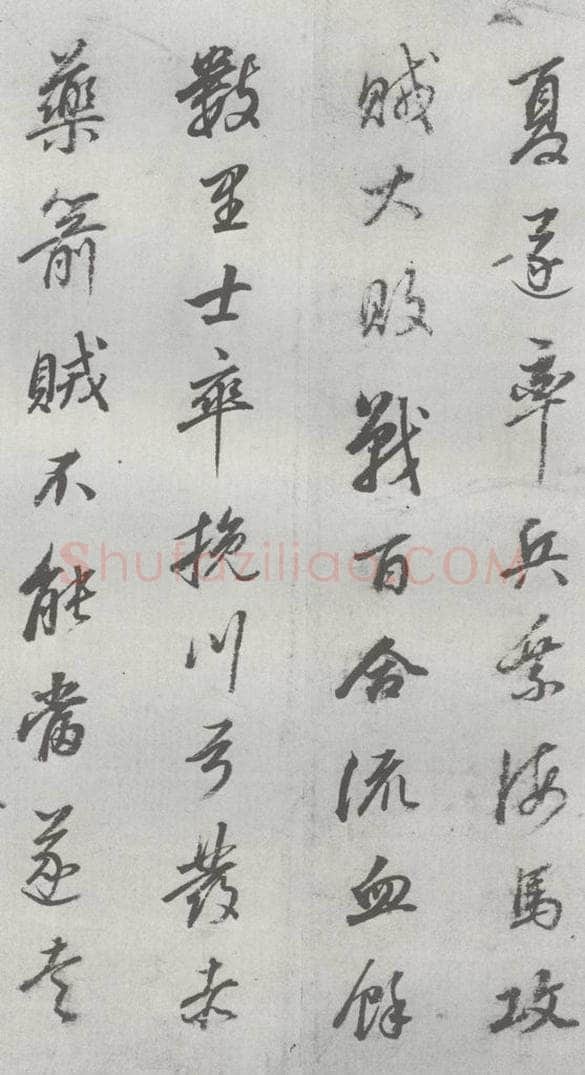 夏遂率兵乘海馬攻
賊大敗戰百合流血餘
數里士卒挽川弓發赤
藥箭賊不能當遂走
Shufaziliao.COM